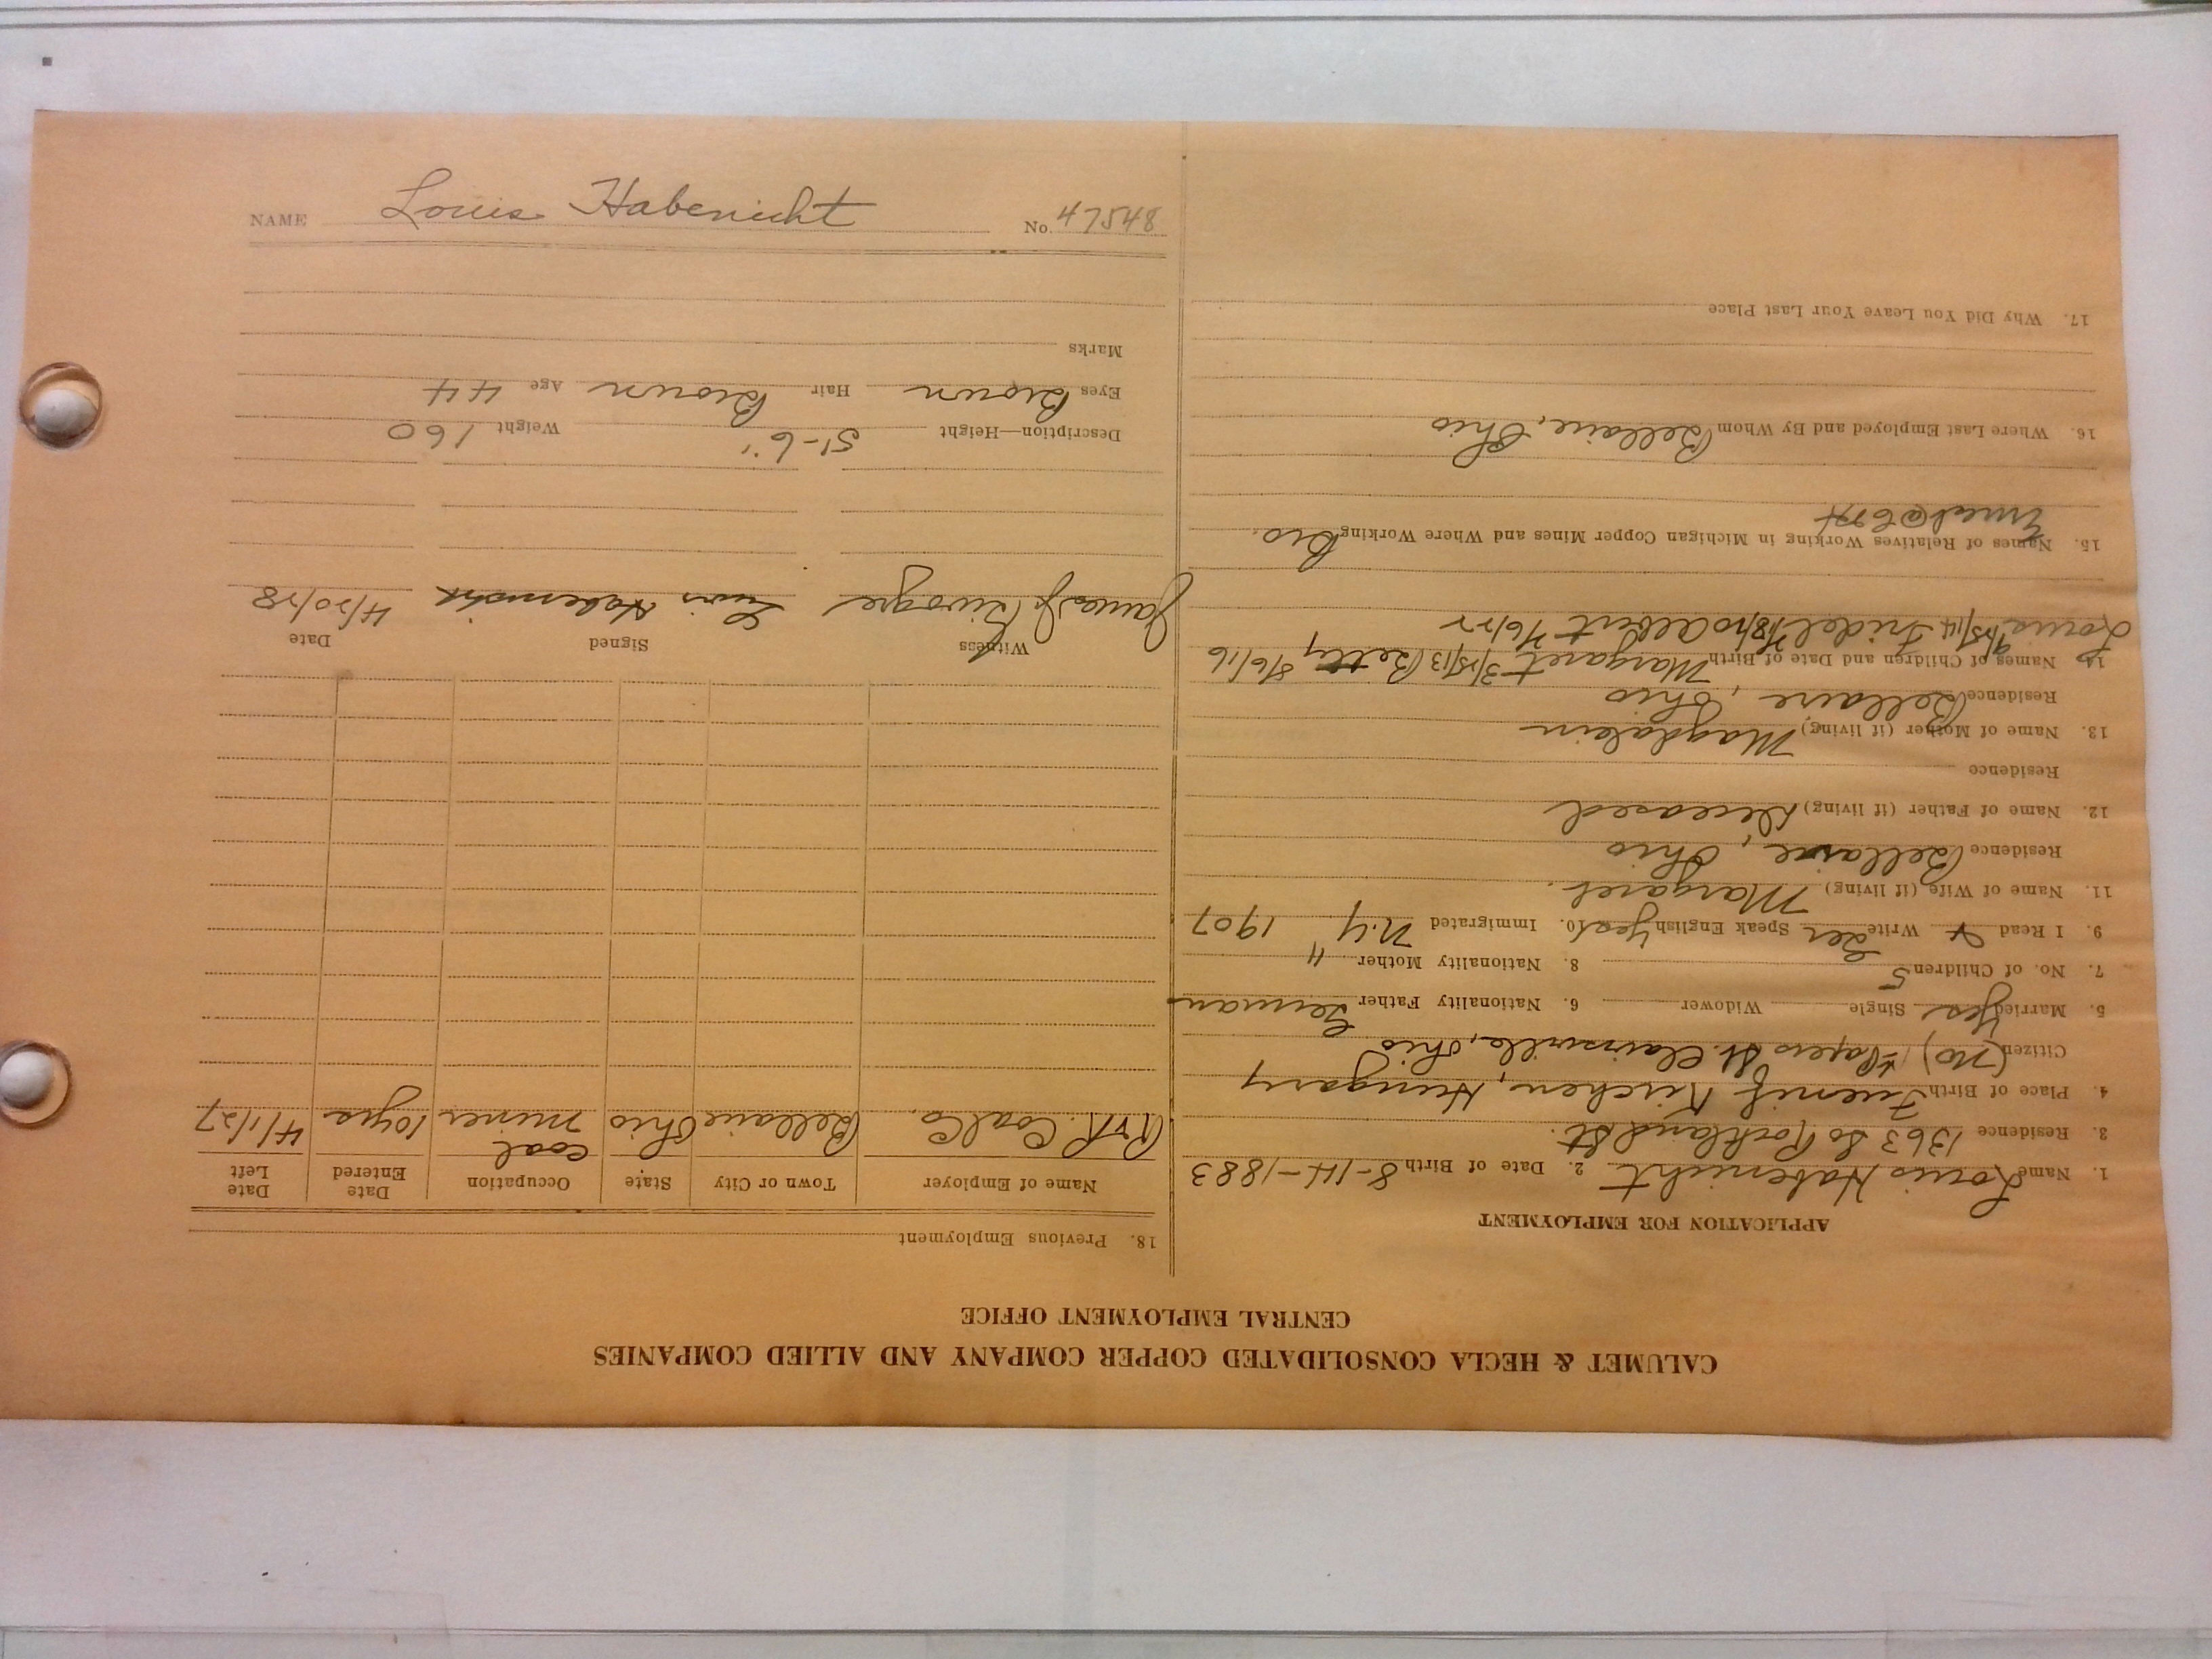 CALUMET & HECLA CONSOLIDATED COPPER COMPANY AND ALLIED COMPANIES
CENTRAL EMPLOYMENT OFFICE
APPLICATION FOR EMPLOYMENT
1. Name Louis Habenicht 2. Date of Birth 8-14-1883
3. Residence 1363 So Rockland St.
4. Place of Birth Fuenif Kirchen, Hungary
Citizen (no) 1st Papers St. Clairsville, Ohio
5. Married Yes Single Widower 6. Nationality Father German
7. No. of Children 5 8. Nationality Mother "
9. I Read & Write Ger Speak English Yes 10. Immigrated N.Y. 1907
11. Name of Wife (if living) Margaret
Residence Bellaire, Ohio
12. Name of Father (if living) Deceased
Residence
13. Name of Mother (if living) Magdalein
Residence Bellaire, Ohio
14. Names of Children and Date of Birth Margaret 3/25/13 Betty 8/6/16
Louis 9/25/14 Fridel 7/8/20 Albert 7/6/22
15. Names of Relatives Working in Michigan Copper Mines and Where Working Bro.
16. Where Last Employed and By Whom Bellaire, Ohio
17. Why Did You Leave Your Last Place
18. Previous Employment
Name of Employer Town or City State Occupation Date Entered Date Left
Coal Co. Bellaire Ohio coal miner 10 yrs 4/1/27
Witness Signed Date
James J. Louis Habenicht 4/20/28
Description—Height 5'-6" Weight 160
Eyes Brown Hair Brown Age 44
Marks
NAME Louis Habenicht No. 47548